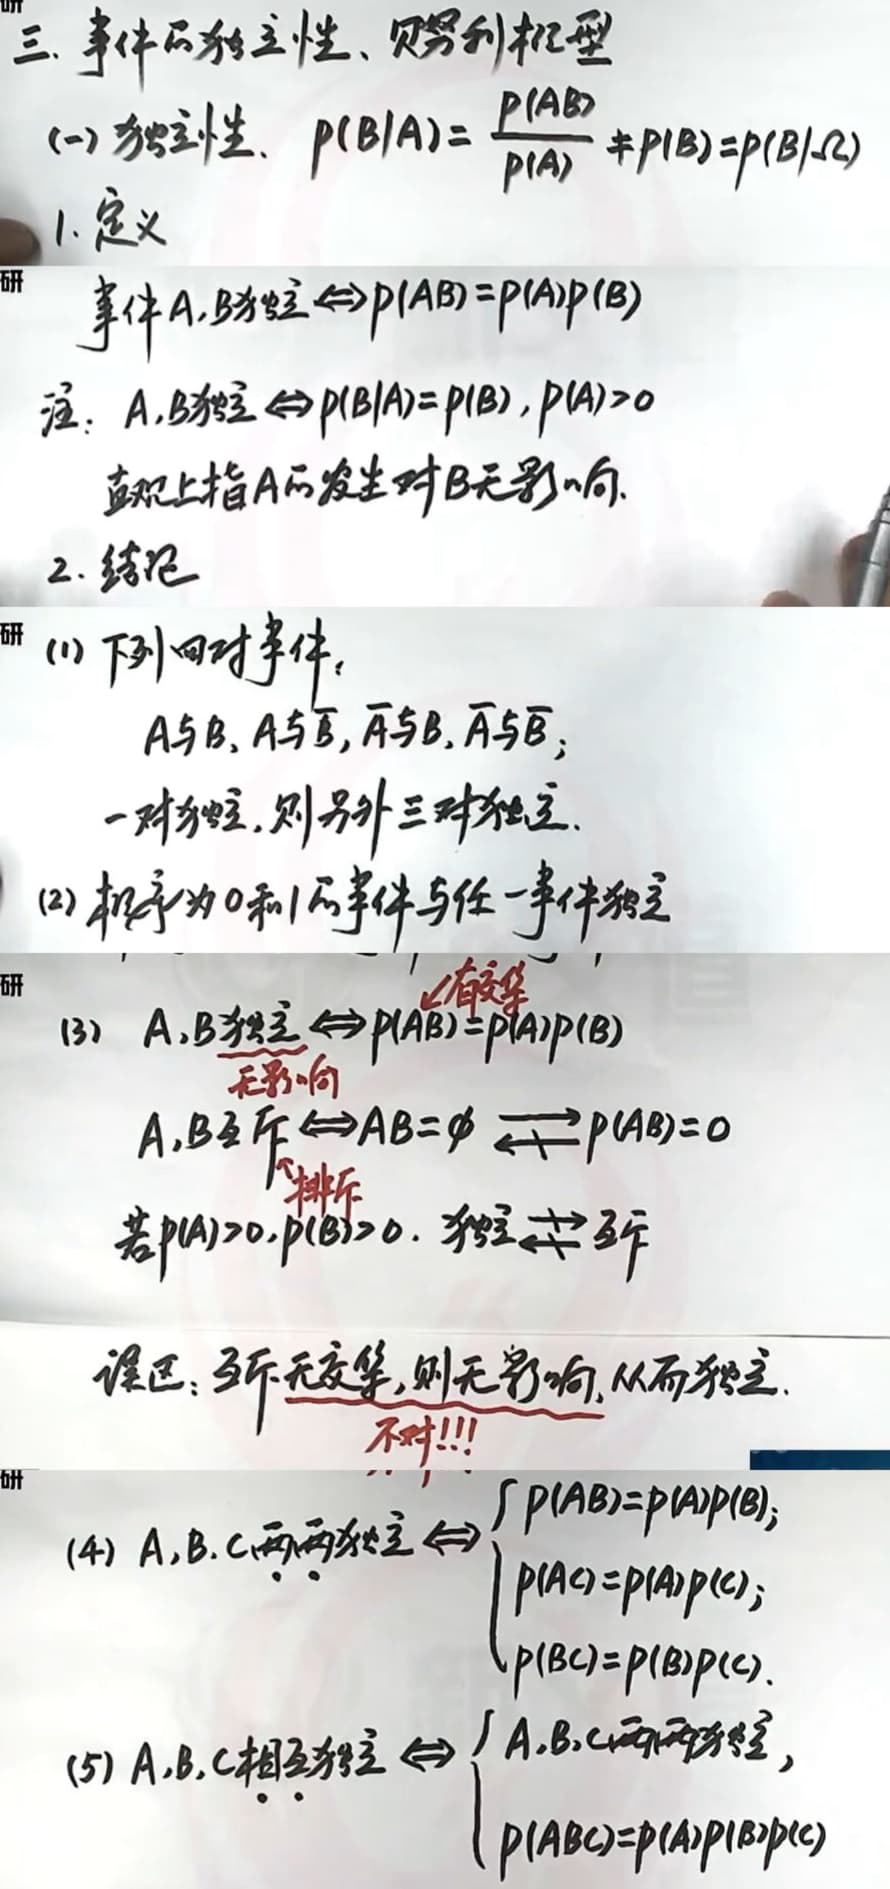 研
三. 事件的独立性、贝努利概型
(一) 独立性. P(B|A)= P(AB)/P(A) ≠ P(B)=P(B|Ω)
1. 定义
研
事件A,B独立⇔P(AB)=P(A)P(B)
注: A,B独立⇔P(B|A)=P(B), P(A)>0
直观上指A的发生对B无影响.
2. 结论
研
(1) 下列四对事件:
A与B, A与B̅, A̅与B, A̅与B̅;
一对独立,则另外三对独立.
(2) 概率为0和1的事件与任一事件独立
研
↙有交集
(3) A,B独立⇔P(AB)=P(A)P(B)
无影响
A,B互斥⇔AB=∅ ⇄̸ P(AB)=0
↖排斥
若P(A)>0,P(B)>0. 独立⇄̸互斥
误区: 互斥无交集,则无影响,从而独立.
不对!!!
研
(4) A,B,C两两独立⇔{P(AB)=P(A)P(B);
P(AC)=P(A)P(C);
P(BC)=P(B)P(C).
(5) A,B,C相互独立⇔{A,B,C两两独立,
P(ABC)=P(A)P(B)P(C)